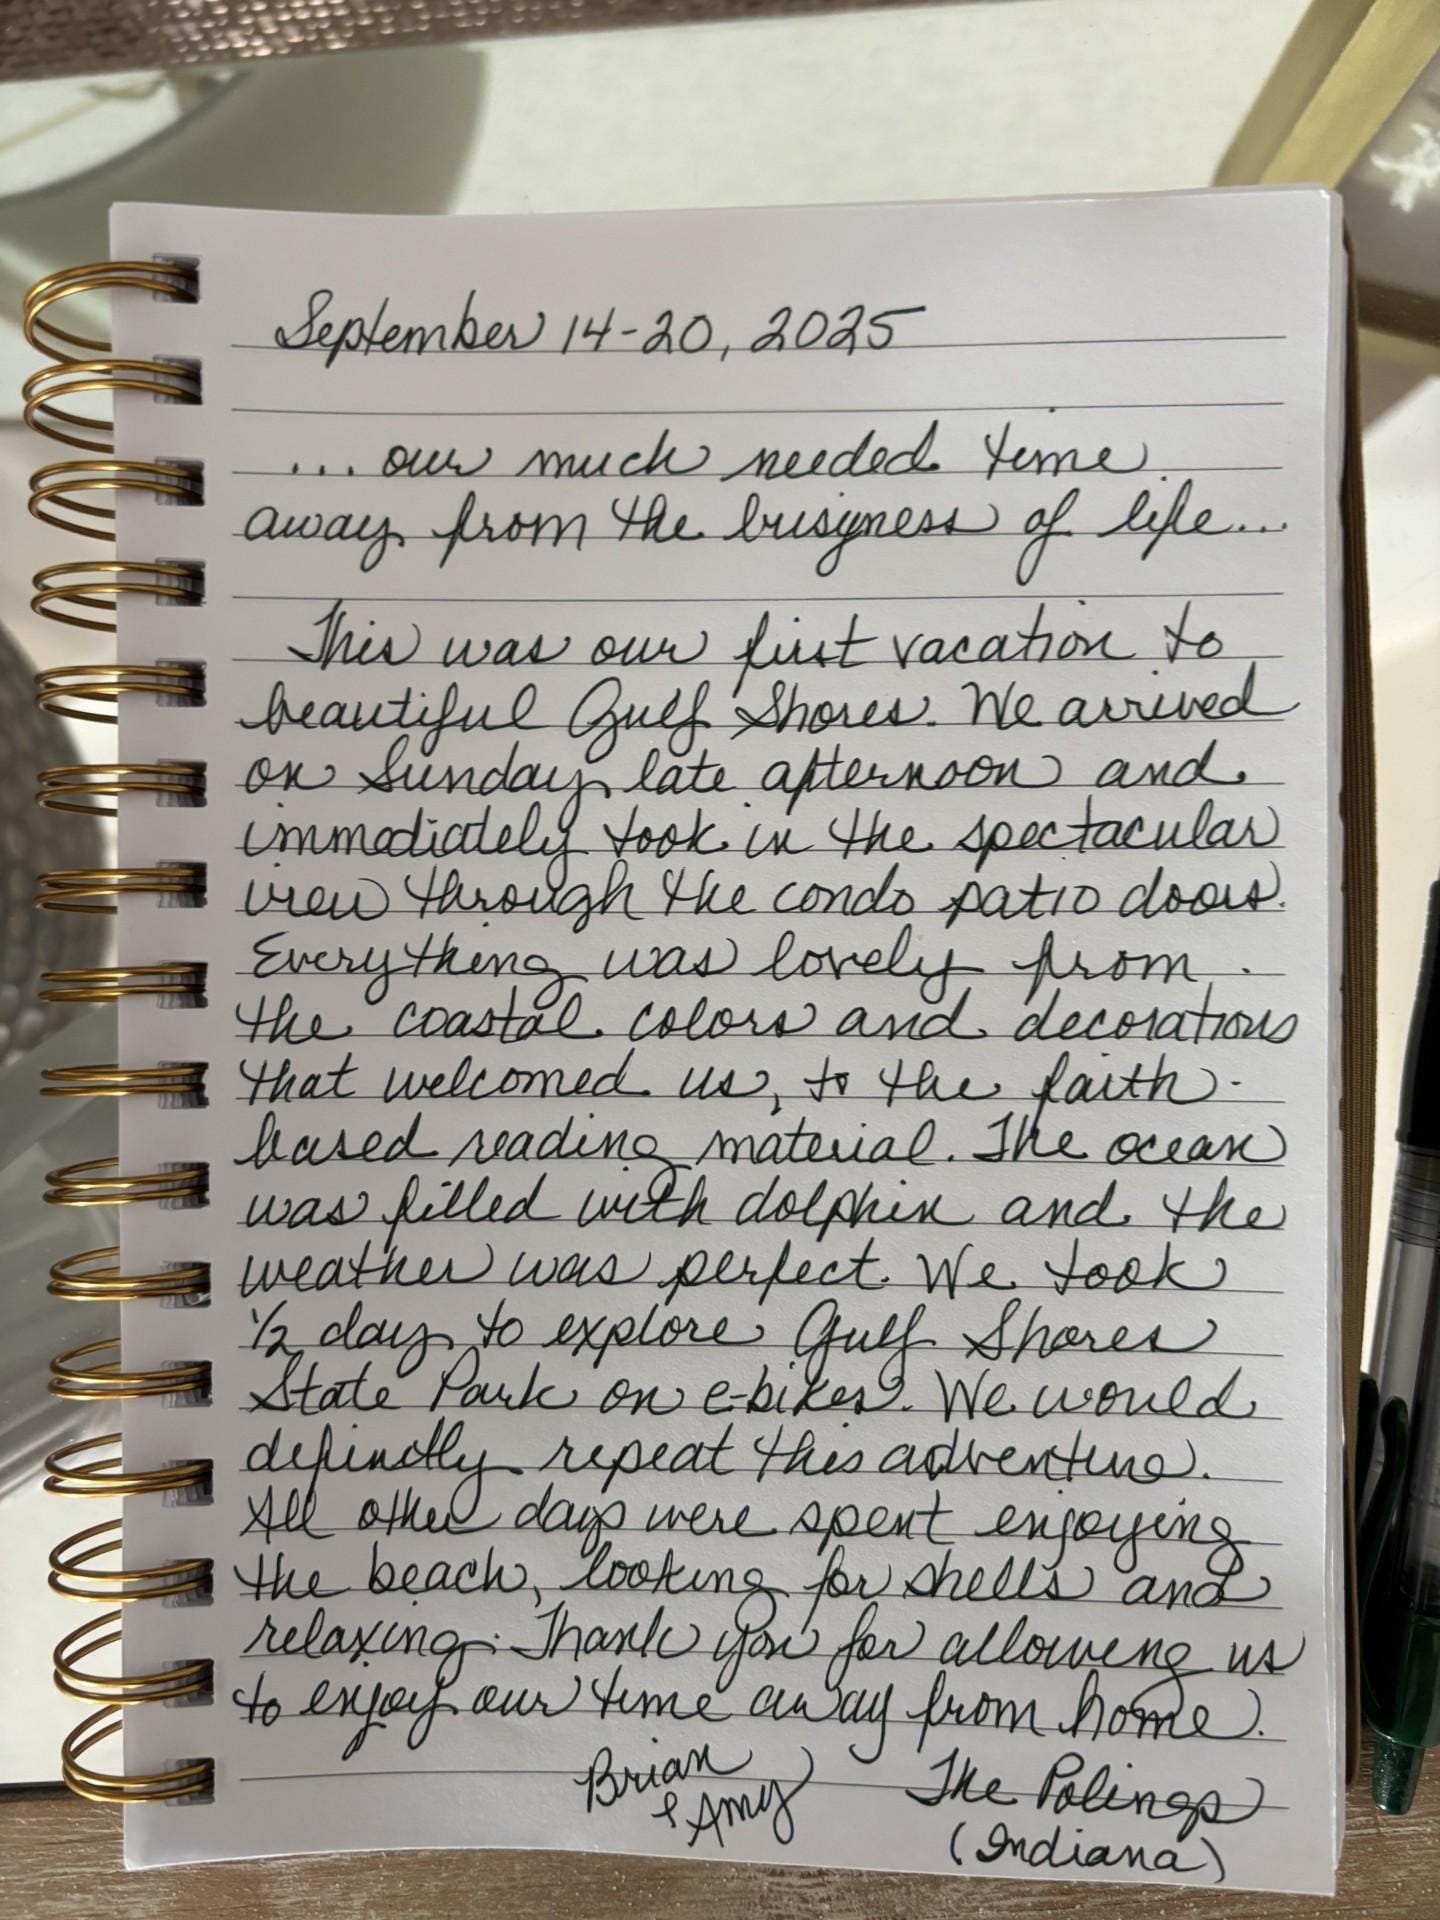 September 14-20, 2025
... our much needed time
away from the busyness of life...
This was our first vacation to
beautiful Gulf Shores. We arrived
on Sunday late afternoon and
immediately took in the spectacular
view through the condo patio doors.
Everything was lovely from
the coastal colors and decorations
that welcomed us, to the faith-
based reading material. The ocean
was filled with dolphin and the
weather was perfect. We took
1/2 day to explore Gulf Shores
State Park on e-bikes. We would
definitly repeat this adventure.
All other days were spent enjoying
the beach, looking for shells and
relaxing. Thank you for allowing us
to enjoy our time away from home.
Brian The Polings
& Amy (Indiana)